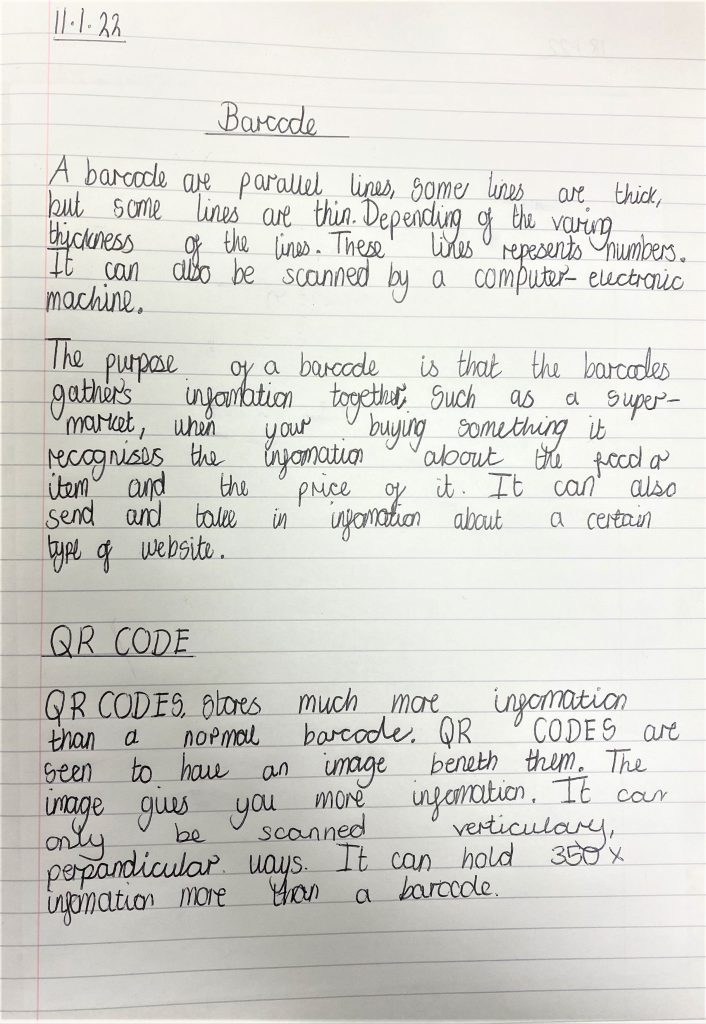 11.1.22
Barcode
A barcode are parallel lines, some lines are thick,
but some lines are thin. Depending of the varing
thickness of the lines. These lines repesents numbers.
It can also be scanned by a computer- electronic
machine.
The purpose of a barcode is that the barcodes
gathers infomation together, such as a super-
market, when your buying something it
recognises the infomation about the food or
item and the price of it. It can also
send and take in infomation about a certain
type of website.
QR CODE
QR CODES, stores much more infomation
than a normal barcode. QR CODES are
seen to have an image beneth them. The
image gives you more infomation. It can
only be scanned verticulary,
perpandicular ways. It can hold 350 x
infomation more than a barcode.